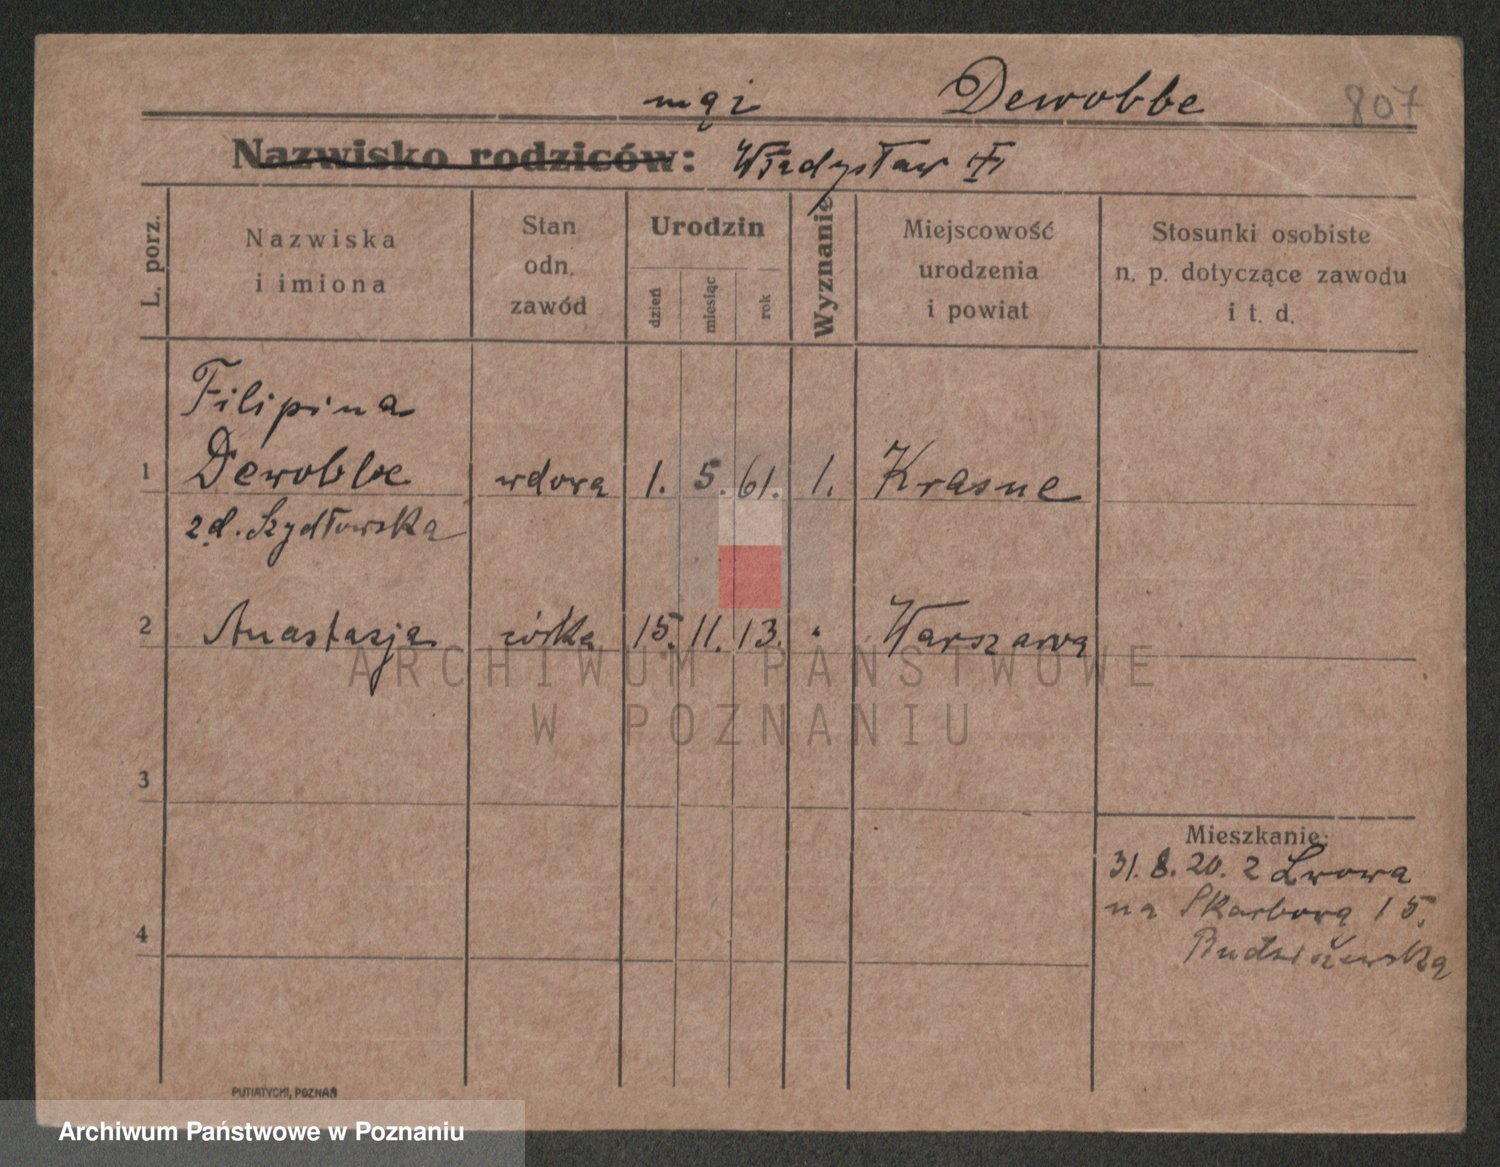 mąż Dewobbe 807
Nazwisko rodziców: Władysław
L. porz.
Nazwiska
i imiona
Stan
odn.
zawód
Urodzin
dzień
miesiąc
rok
Wyznanie
Miejscowość
urodzenia
i powiat
Stosunki osobiste
n. p. dotyczące zawodu
i t. d.
Filipina
1 Dewobbe wdowa 1. 5. 61. 1. Krasne
z d. Szydłowska
2 Anastazja córka 15. 11. 13. " Warszawa
3
Mieszkanie:
31. 8. 20. z Lwowa
na Skarbową 15.
4
Budziszewska
PUTIATYCKI, POZNAŃ
ARCHIWUM PAŃSTWOWE
W POZNANIU
Archiwum Państwowe w Poznaniu